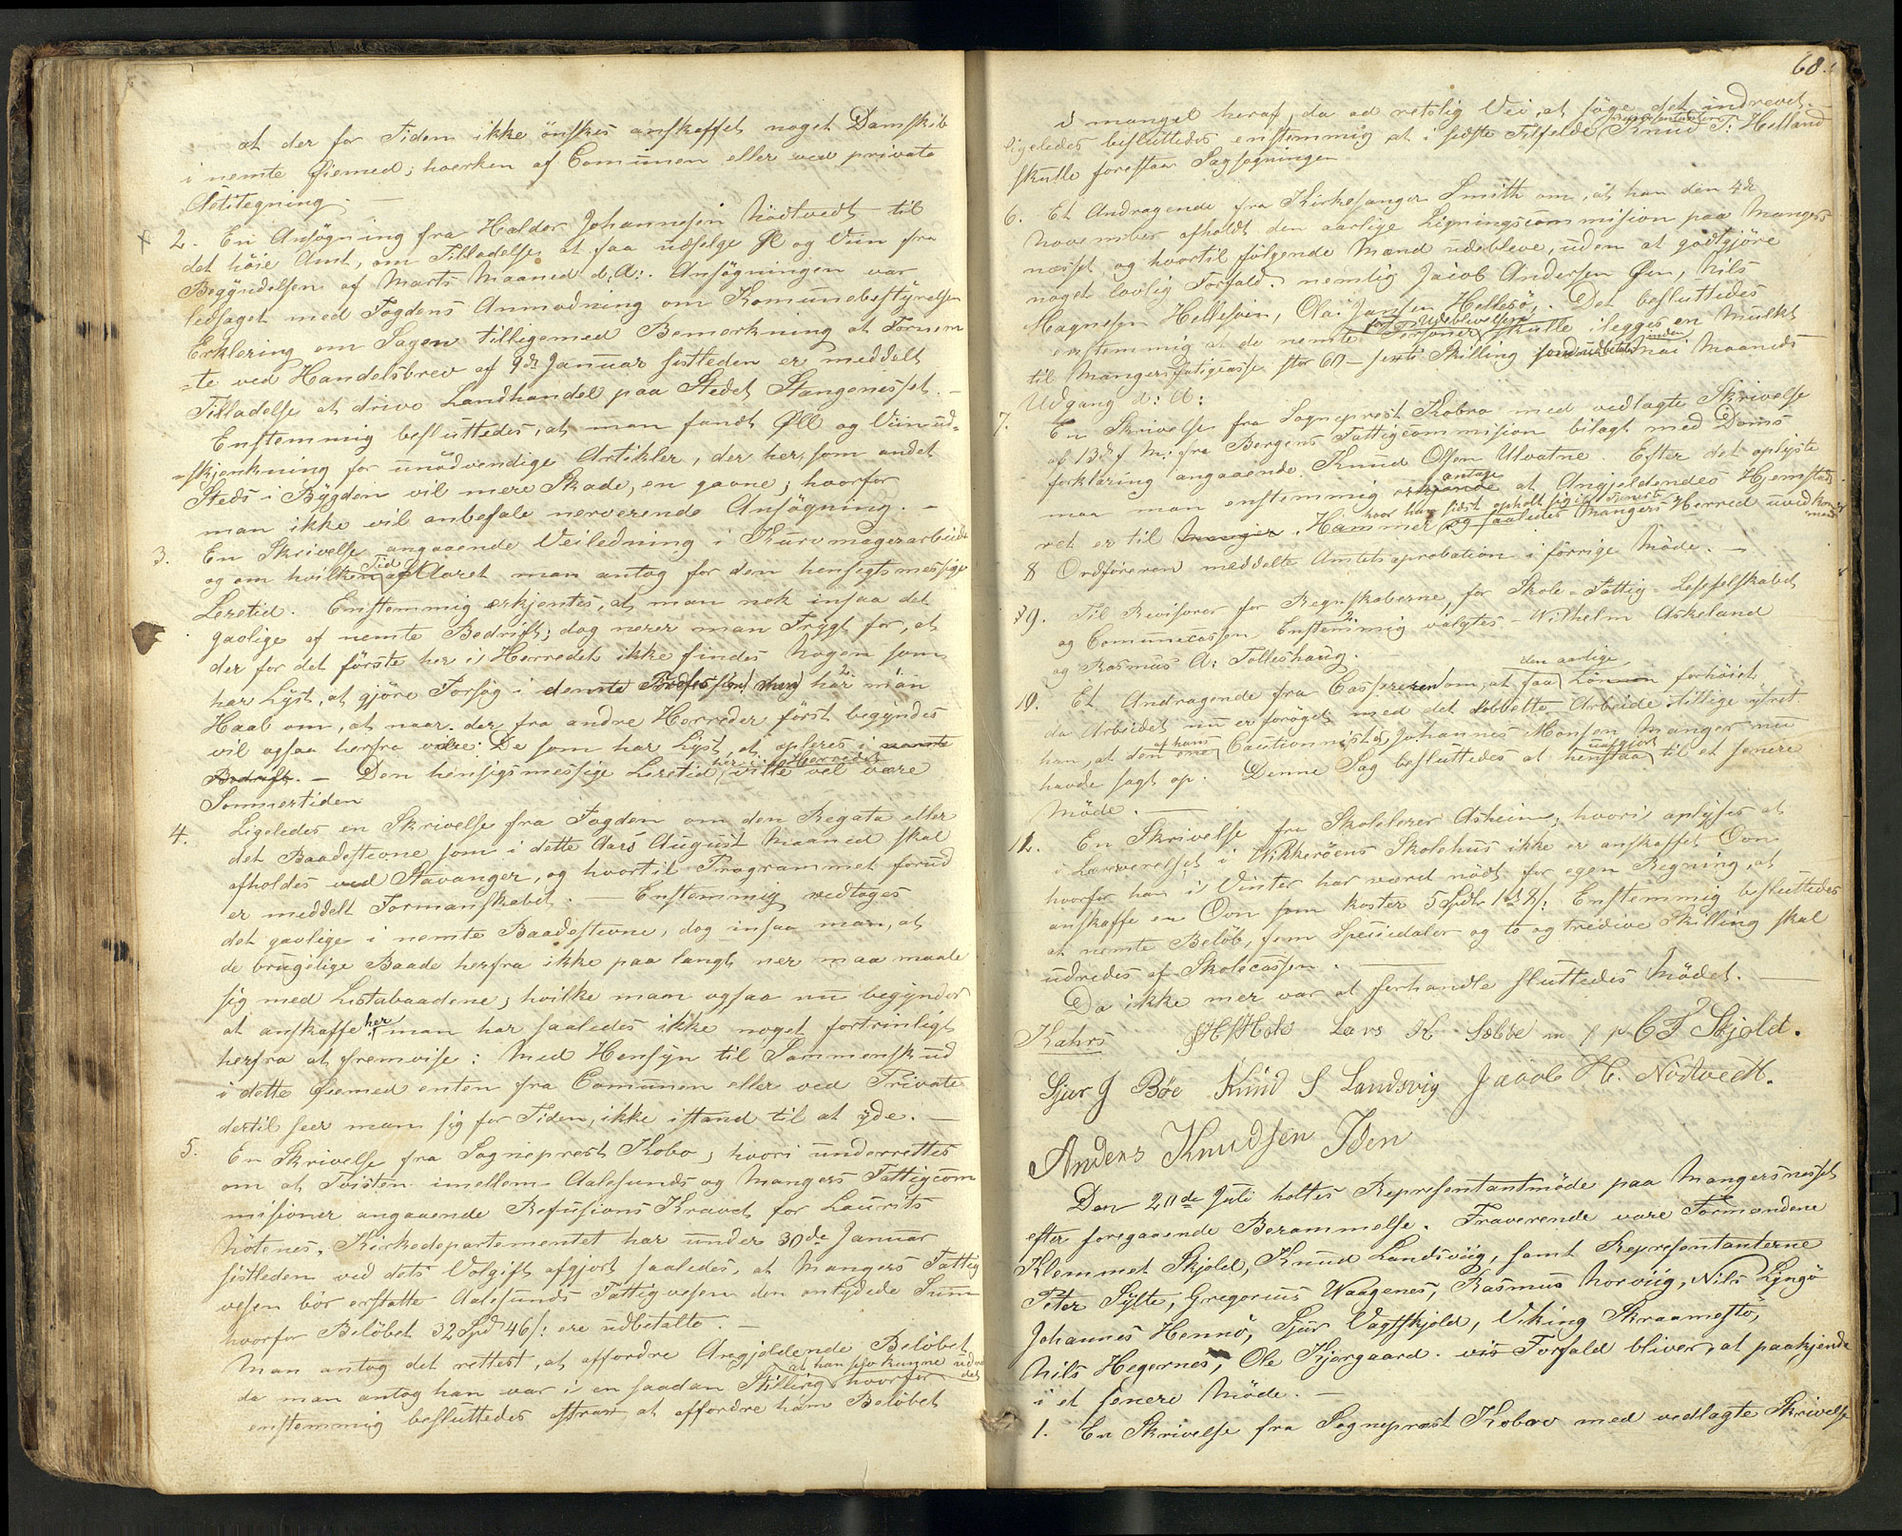 at der for Tiden ikke önskes anskaffet noget Damskib
i nemte Øiemed; hverken af Comunen eller ved private
Actetegning. —
2. En Ansögning fra Haldor Johannesen Nödtvedt til
det höie Amt, om Tilladelse at faa udselge Øl og Viin fra
Begyndelsen af Marts Maaned d: A:. Ansögningen var
ledsaget med Fogdens Anmodning om Komunebestyrelsen
Erklering om Sagen tilligemed Bemerkning at Fornem
=te ved Handelsbrev af 9de Januar sistleden er meddelt
Tilladelse at drive Landhandel paa Stedet Stangenesset. —
Enstemmig besluttedes, at man fandt Øll og Viinud=
=skjenkning for unödvendige Artikler, der her, som andet
Steds i Bygden vil mere Skade, en gavne; hvorfor
man ikke vil anbefale nerverende Ansögning. —
3. En Skrivelse angaaende Veiledning i Kurvmagerarbeidet
og om hvilken Tid af Aaret man antog for den hensigtsmessige
Leretid. Enstemmig erkjentes, at man nok insaa det
gavlige af nemte Bedrift; dog nerer man Frygt for, at
der for det förste her i Herredet ikke findes Nogen som
har Lyst, at gjöre Forsög i denne har man
Haab om, at naar der fra andre Herreder först begyndes
vil ogsaa herfra vilre: De som har Lyst, at opleres i nemte
Bedrift. — Den hensigsmessige Leretid her i Herredet vilte vel være
Sommertiden
4. Ligeledes en Skrivelse fra Fogden om den Regata eller
det Baadestevne som i dette Aars August Maaned skal
afholdes ved Stavanger, og hvortil Programmet forud
er meddelt Formanskabet. — Enstemmig vedtoges
det gavlige i nemte Baadestevne, dog insaa man, at
de brugelige Baade herfra ikke paa langt ner maa maale
sig med Listabaadene; hvilke man ogsaa nu begynder
at anskaffe her, man har saaledes ikke noget fortrinligt
herfra at fremvise: Med Hensyn til Sammenskud
i dette Øiemed enten fra Comunen eller ved Private
dertil seer man sig for Tiden, ikke istand til at yde. —
5. En Skrivelse fra Sogneprest Kobro; hvori underrettes
om at Tvisten imellem Aalesunds og Mangers Fattigcom
misioner angaaende Refusions Kravet for Laurits
Nötenes, Kirkedepartementet har under 30de Januar
sistleden ved dets Volgift afgjort saaledes, at Mangers Fattig
vesen bör erstatte Aalesunds Fattigvesen den antydede Sum
hvorfor Belöbet 32 Spd 46 s: ere udbetalte. —
Man antog det rettest, at affordre Angjeldende Belöbet
da man antog han var i en saadan Stilling at han kunne udrede det hvorfor
enstemmig besluttedes at affordre ham Belöbet
68.
i mangel heraf, da ad retslig Vei at söge det indrevet. —
ligeledes besluttedes enstemmig at i sidste Tilfelde Representanten Knud T: Helland
skulle forestaa Sagsögningen
6. Et Andragende fra Kirkesanger Smith om, at han den 4de
November afholdt den aarlige Ligningscommision paa Manger
nesset og hvortil fölgende Mænd udebleve, uden at godtgjöre
noget lovlig Forfald. nemlig Jacob Andersen Øen, Nils
Magnesen Hellesöin, Ola: Jansen Hellesö,. Det besluttedes
enstemmig at de nemte Personer for Udeblivelsen skulle ilegges en Mulkt
til Mangers Fatigcasse stor 60 – sexti Skilling inden Mai Maaneds
Udgang d: A:
7. En Skrivelse fra Sogneprest Kobro med vedlagte Skrivelse
af 13de f M: fra Bergens Fattigcommision bilagt med Doms
forklaring angaaende Knud Olsen Ulvatne. Efter det oplyste
maa man enstemmig antage at Angjeldendes Hjemsted
ret er til Manger. Hammer hvor han sidst opholt sig og saaledes Mangers Herred uvedkom
mende
8 Ordföreren meddelte Amtets aprobation i förrige Möde. —
§9. Til Revisorer for Regnskaberne, for Skole- Fattig- Leseselskabet
og Comunecassen Enstemmig valgtes – Wilhelm Askeland
og Rasmus A: Tolleshaug.
10. Et Andragende fra Cassereren om, at faa den aarlige Lönnen forhöiet
da Arbeidet nu er forögel med det dobbelte Arbeide tillige ytret
han, at den ene af hans Cautionnister, Johannes Monsen Manger nu
havde sagt op. Denne Sag besluttedes at henstaa uafgjort til et senere
Möde. —
11. En Skrivelse fra Skolelerer Asheim, hvori oplyses at
i Læreverelset i Nikkeröens Skolehus ikke er anskaffet Ovn
hvorfor han i Vinter har været nödt for egen Regning, at
anskaffe en Ovn som koster 5 Spdlr 1 32 s: Enstemmig besluttedes
at nemte Belöb, fem Speciedaler og to og tredive Skilling skal
udredes af Skolecassen. —
Da ikke mer var at forhandle sluttedes Mödet. —
Kahrs Lars K Sæbbe m f p C T Skjold.
Sjur J Böe Knud S Landsvig Jacob H. Nödtvedt.
Anders Knudsen Iden
Den 20de Juli holtes Representantmöde paa Mangersnesset
efter foregaaende Berammelse. Fraverende vare Formændene
Klemmet Skjold, Knud Landsviig, samt Representanterne
Peter Sylte, Gregorius Waagenes, Rasmus Norviig, Nils Lyngö
Johannes Hennö, Sjur Vagtskjold, Viking Skraamestö,
Nils Hegernes, Ole Kjergaard. vis Forfald bliver, at paakjende
i et senere Möde. —
1. En Skrivelse fra Sogneprest Kobro med vedlagte Skrivelse